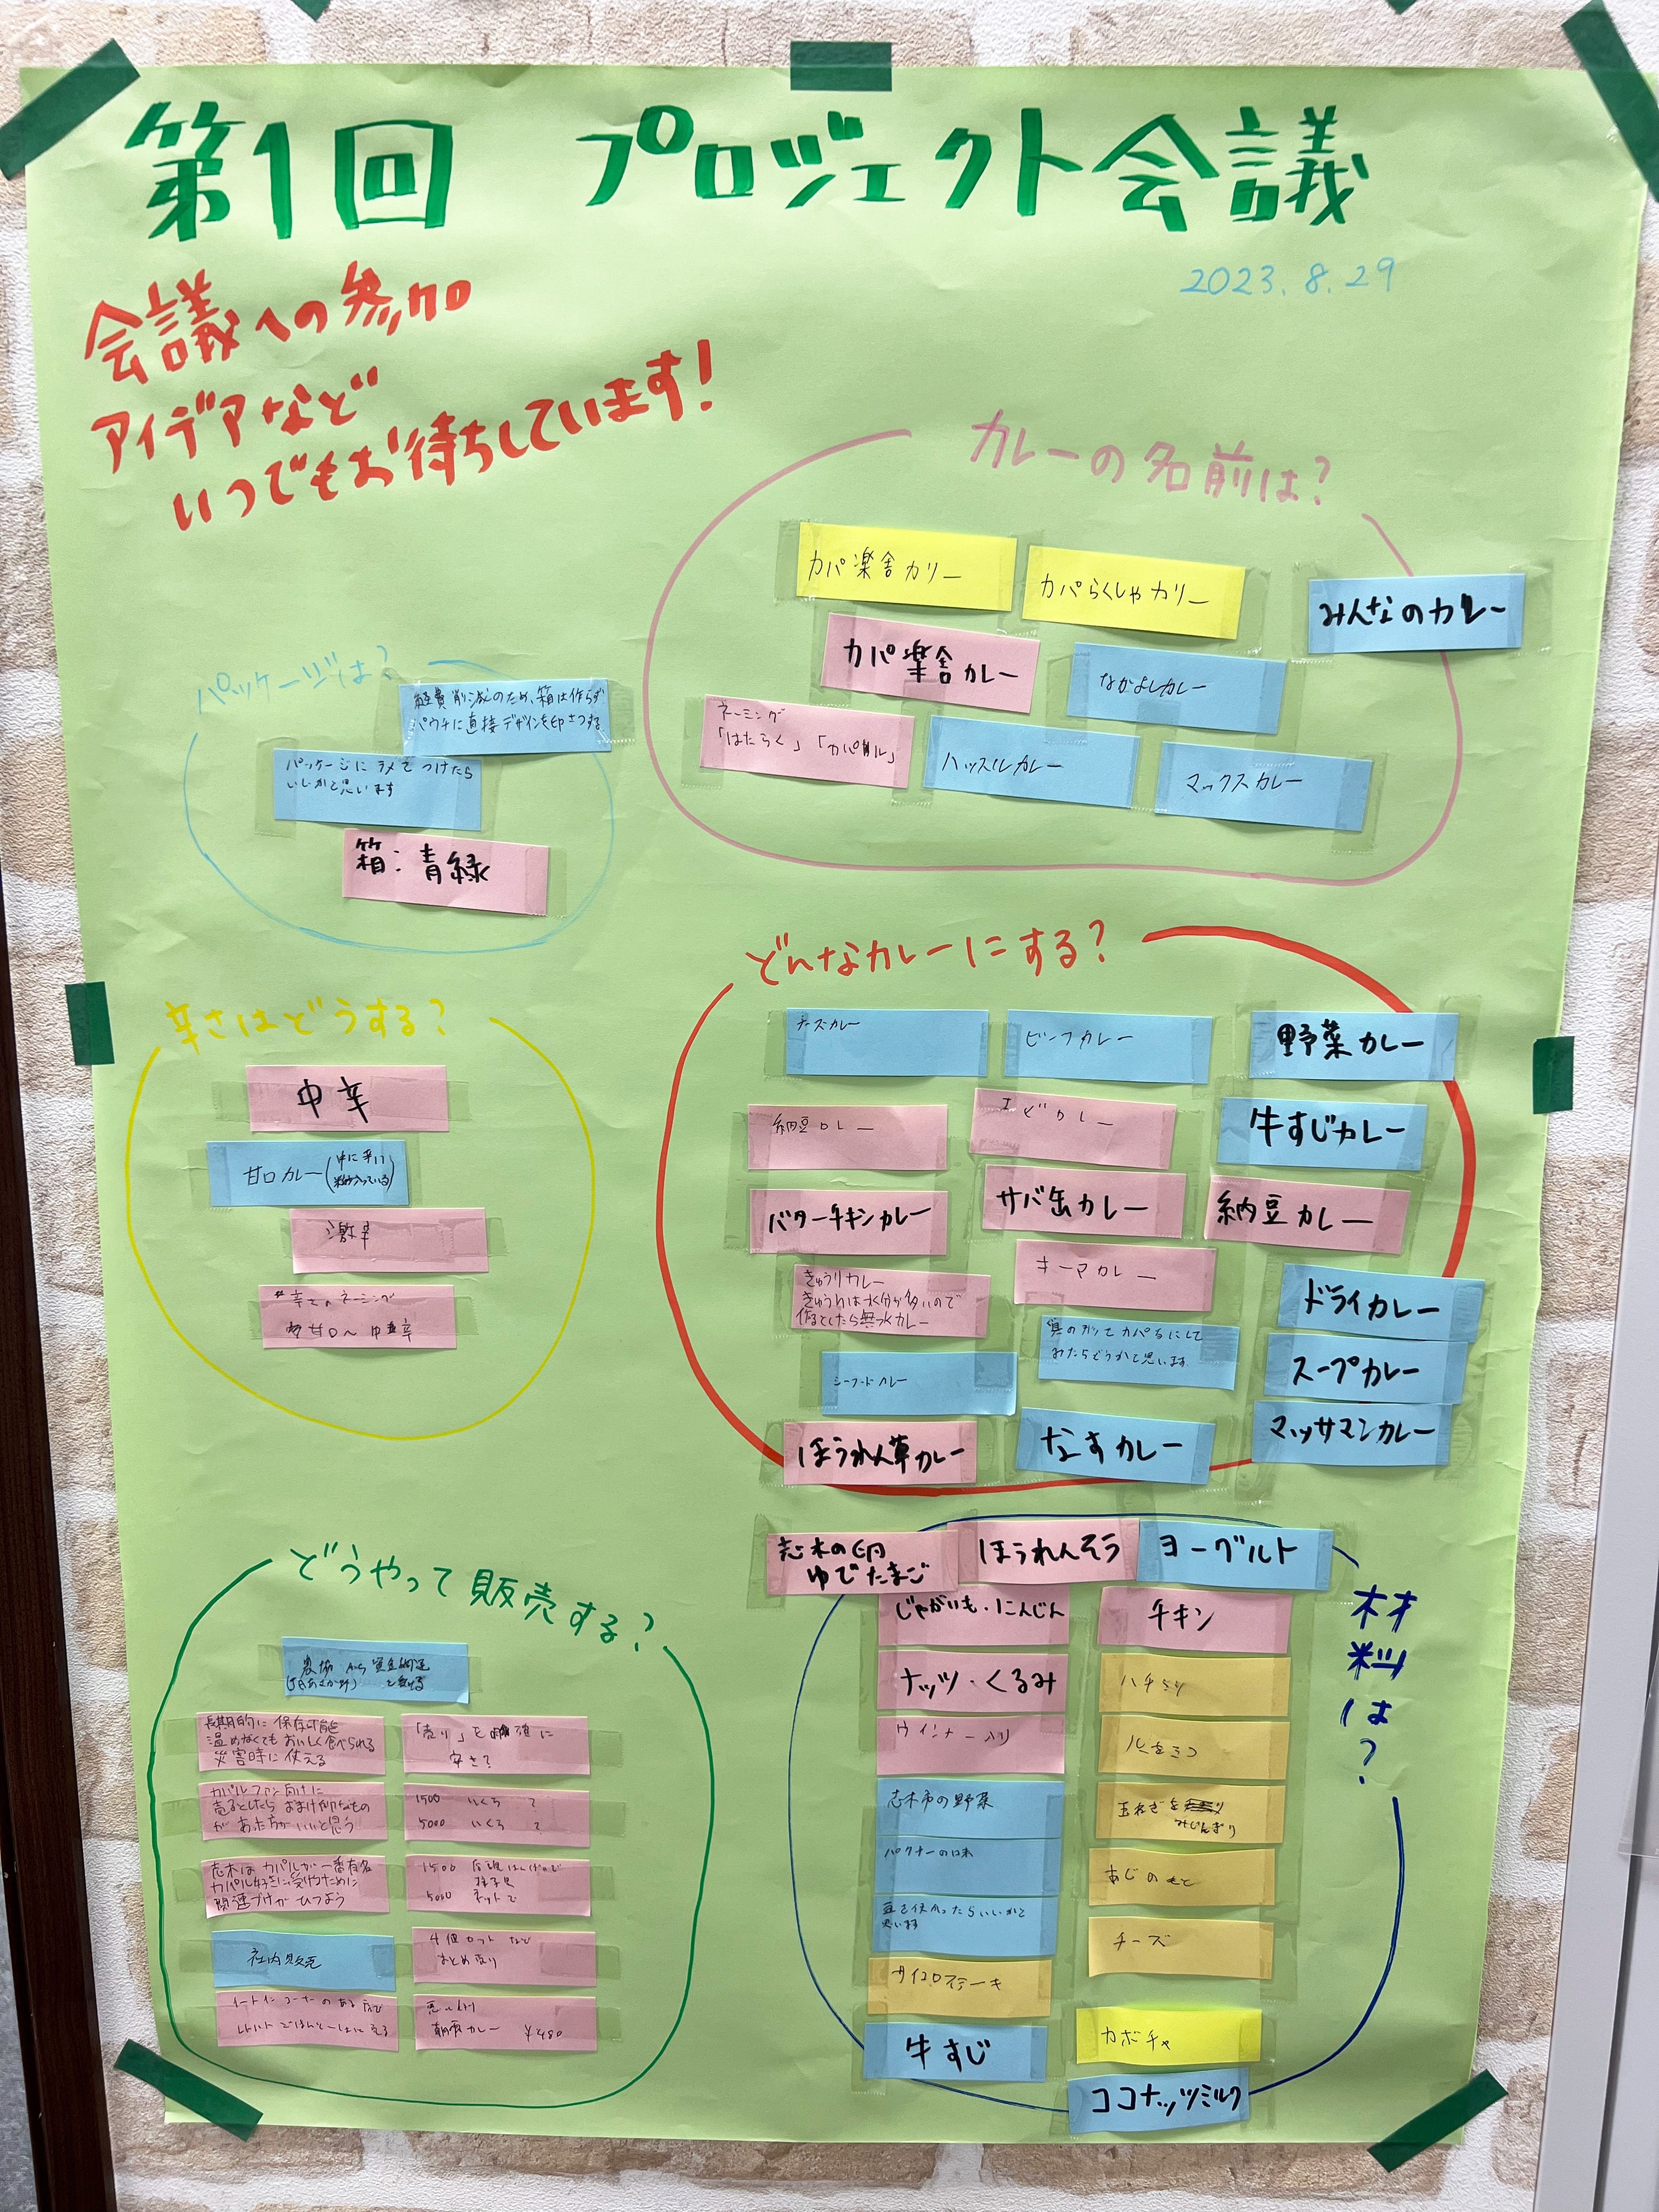 第1回 プロジェクト会議
2023.8.29
会議への参加
アイデアなど
いつでもお待ちしています!
カレーの名前は?
カパ楽舎カリー
カパらくしゃカリー
みんなのカレー
カパ楽舎カレー
なかよしカレー
ネーミング
「はたらく」「カパル」
ハッスルカレー
マックスカレー
パッケージは?
経費削減のため、箱は作らず
パウチに直接デザインを印さつする
パッケージにラメをつけたら
いいかと思います
箱:青緑
どんなカレーにする?
チーズカレー
ビーフカレー
野菜カレー
納豆カレー
エビカレー
牛すじカレー
バターチキンカレー
サバ缶カレー
納豆カレー
きゅうりカレー
きゅうりは水分が多いので
作るとしたら無水カレー
キーマカレー
ドライカレー
みたらどうかと思います
シーフードカレー
スープカレー
ほうれん草カレー
なすカレー
マッサマンカレー
辛さはどうする?
中辛
甘口カレー
激辛
辛さのネーミング
甘口〜中辛
どうやって販売する?
長期的に保存可能
温めなくてもおいしく食べられる
災害時に使える
「売り」を明確に
安さ?
カパルファン向けに
売るとしたらおまけ的なもの
があった方がいいと思う
1500 いくら ?
5000 いくら ?
志木はカパルが一番有名
関連づけがひつよう
1500
5000 ネットで
社内販売
4個セットなど
まとめ売り
イートインコーナーのある
カレー ¥480
材料は?
志木の卵
ゆでたまご
ほうれんそう
ヨーグルト
じゃがいも・にんじん
チキン
ナッツ・くるみ
ハチミツ
ウインナー入り
志木市の野菜
玉ねぎを
みじんぎり
パクチーの
豆を使ったらいいかと
思います
あじのもと
サイコロステーキ
チーズ
牛すじ
カボチャ
ココナッツミルク